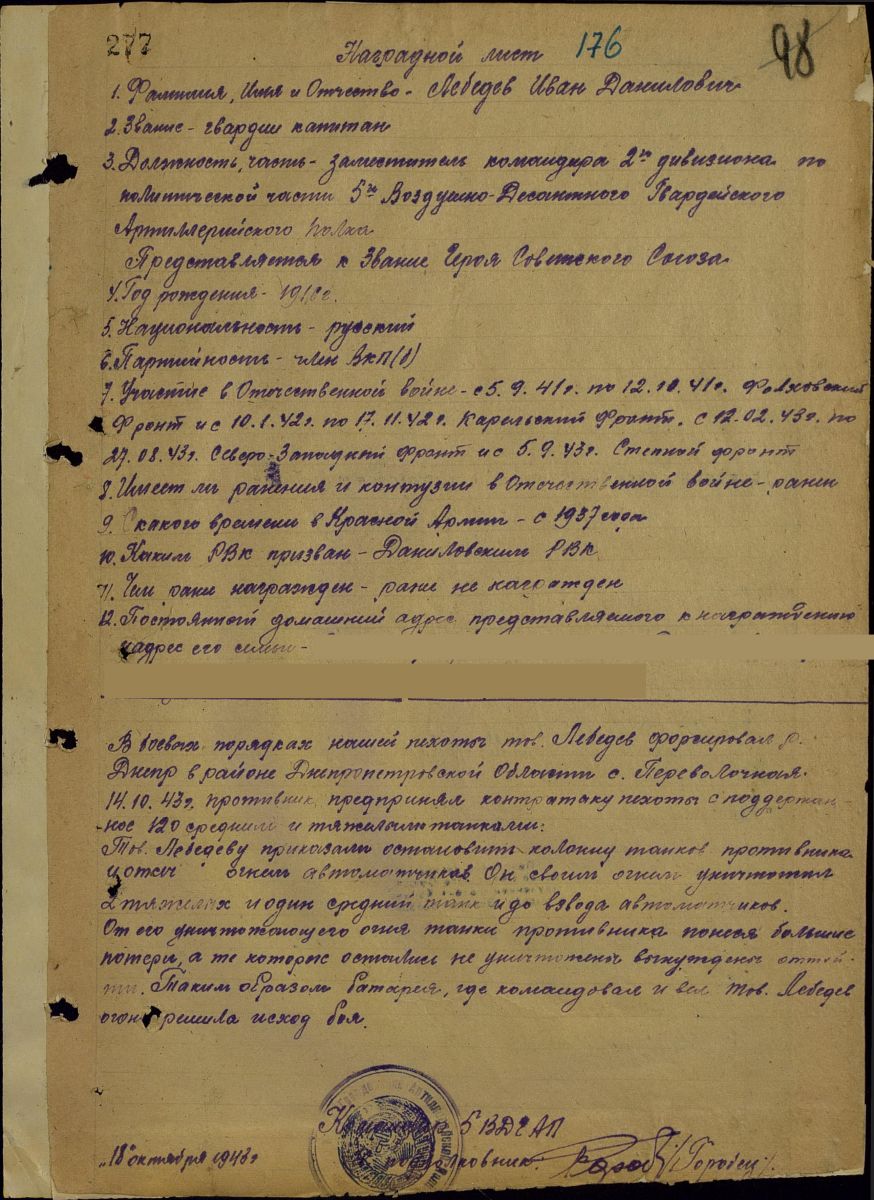 277
176
98
Наградной лист
1. Фамилия, Имя и Отчество - Лебедев Иван Данилович
2. Звание - гвардии капитан
3. Должность, часть - заместитель командира 2го дивизиона по
политической части 5го Воздушно-Десантного Гвардейского
Артиллерийского полка
Представляется к Звание Героя Советского Союза
4. Год рождения -
5. Национальность - русский
6. Партийность - член ВКП(б)
7. Участие в Отечественной войне - с 5.9.41г. по 12.10.41г.
Фронт и с 10.1.42г. по 17.11.42г. Карельский Фронт. с 12.02.43г. по
27.08.43г. Северо-Западный Фронт и с 5.9.43г. Степной фронт
8. Имеет ли ранения и контузии в Отечественной войне - ранен
9. С какого времени в Красной Армии - с 1937 года
10. Каким РВК призван - Даниловским РВК
11. Чем ране награжден - ране не награжден
12. Постоянный домашний адрес представляемого к награждению
и адрес его семьи -
В боевых порядках нашей пехоты тов. Лебедев форсировал р.
Днепр в районе Днепропетровской Области с. Переволочная.
14.10.43г. противник предпринял контратаку пехоты с поддержан-
ное 120 средними и тяжелыми танками:
Тов. Лебедеву приказали остановить колонну танков противника
и отсеч огнем автоматчиков. Он своим огнем уничтожил
2 тяжелых и один средний танк и до взвода автоматчиков.
От его уничтожающего огня танки противника понеся большие
потери, а те которые остались не уничтожены вынуждены оттой-
ти. Таким образом батарея, где командовал и вел тов. Лебедев
огонь решила исход боя.
Командир 5 ВДГАП
подполковник: /Городец/
"18" октября 1943г